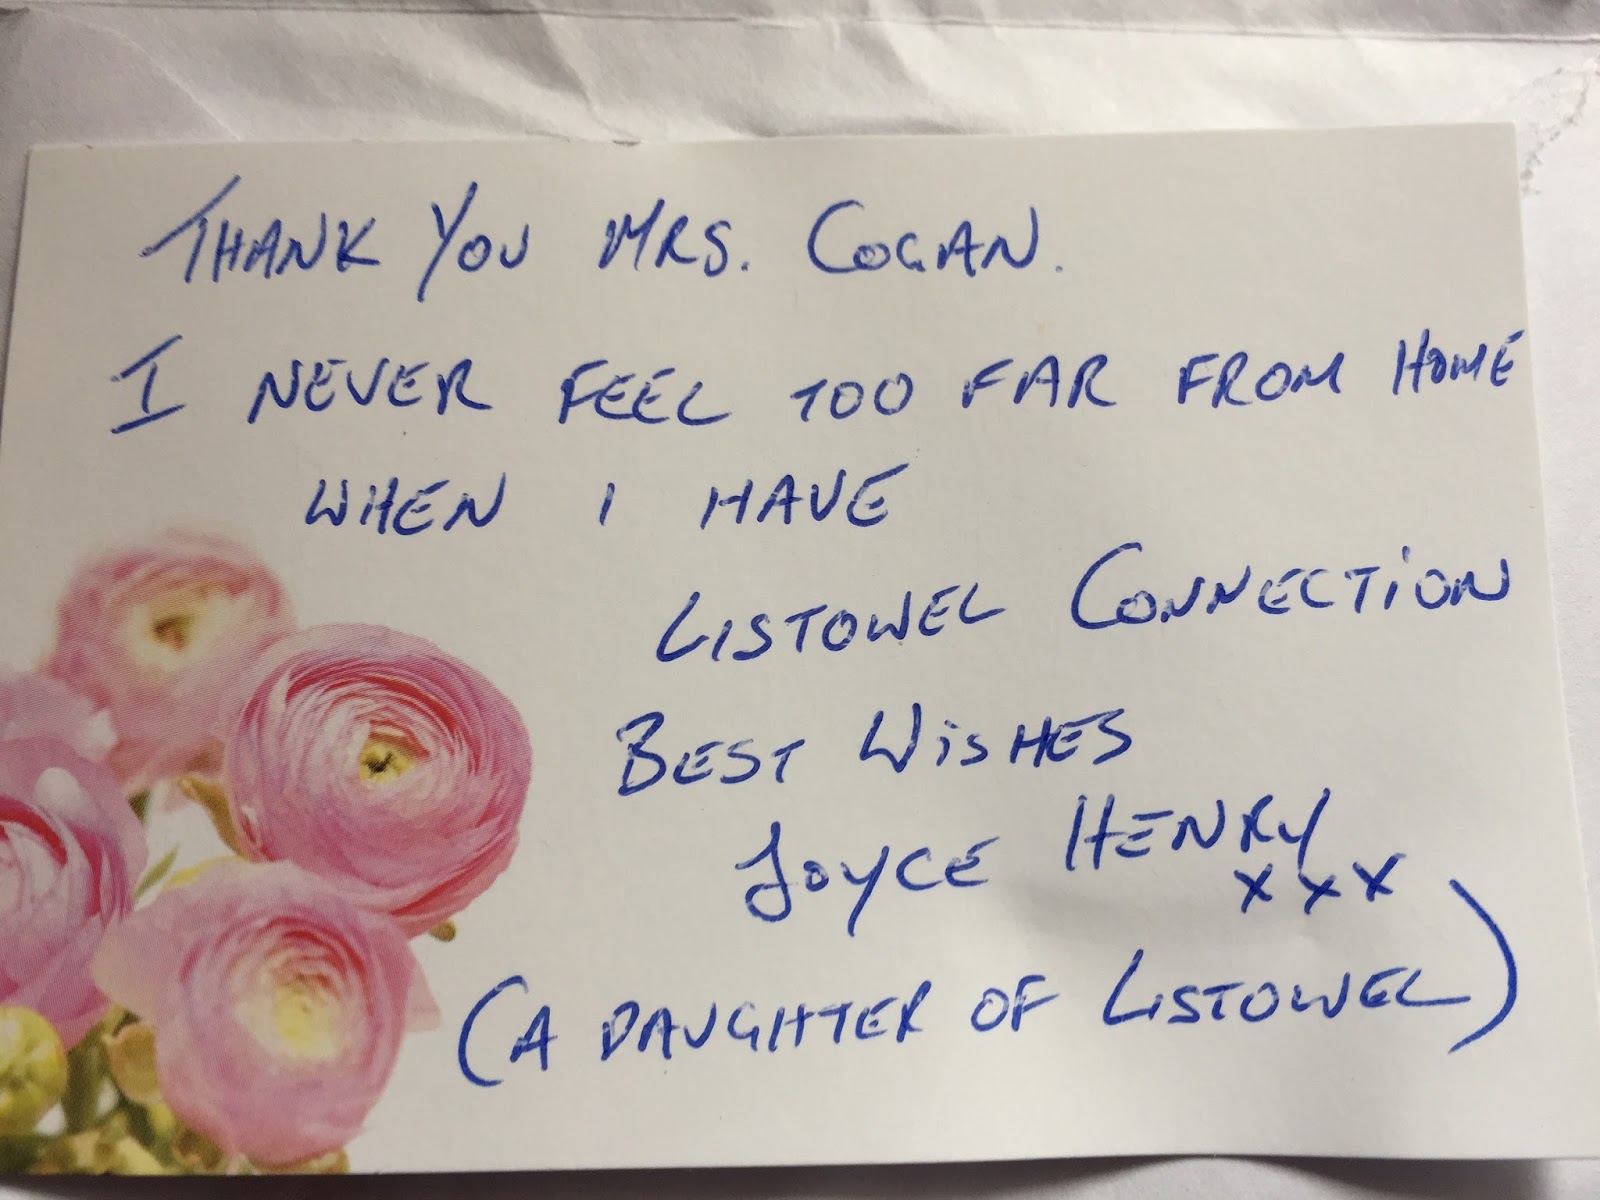 THANK YOU MRS. COGAN.
I NEVER FEEL TOO FAR FROM HOME
WHEN I HAVE
LISTOWEL CONNECTION
BEST WISHES
JOYCE HENRY
x x x
(A DAUGHTER OF LISTOWEL)